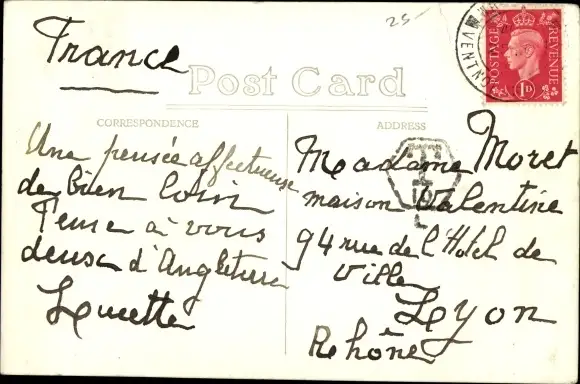 France
25-
Post Card
CORRESPONDENCE
Une pensée affectueuse
de bien loin
Pense à vous
deux d'Angleterre
Lucette
ADDRESS
Madame Moret
maison Valentine
94 rue de l'Hotel de
Ville
Lyon
Rhône
POSTAGE REVENUE
1D
VENTNO
T